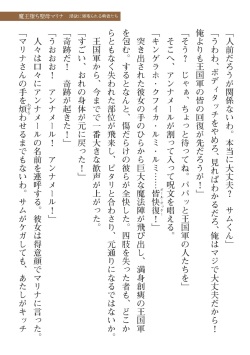 魔王堕ち聖母マリナ 淫紋に服従される勇者たち
「人前だろうが関係ないわ。本当に大丈夫? サムくん」
「うわわ、ボディタッチをやめろ。見ればわかるだろ。俺はマジで大丈夫だから!
俺よりも王国軍の皆の回復が先だろうが!」
「そう? じゃぁ、ちょっと待ってね。パパッと王国軍の人たちを」
そこへ、アンナメールが割って入って呪文を唱える。
「キングラホ・クフイカ・ルミ・ルミ……皆快復!」
突き出された彼女の手のひらから巨大な魔法陣が飛び出し、満身創痍の王国軍
を包む。するとなんと、傷だらけの彼らが全快した。四肢を失った者も、どこか
らともなく失われた部位が飛来し、ピタリと合わさり、元通りになるではないか。
王国軍から、今までで一番大きな歓声が上がった。
「すごい、おれの身体が元に戻った!」
「奇跡だ! 奇跡が起きた!」
「うおおお! アンナメール! アンナメール!」
人々は口々にアンナメールの名前を連呼する。彼女は得意顔でマリナに言った。
「マリナさんの手を煩わせるまでもないわ。サムがケガしても、あたしがキッチ